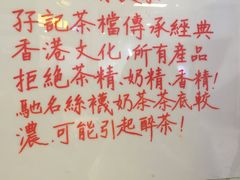 孖記茶檔傳承經典
香港文化,所有産品
拒絶茶精、奶精、香精!
馳名絲襪奶茶茶底較
濃.可能引起醉茶!